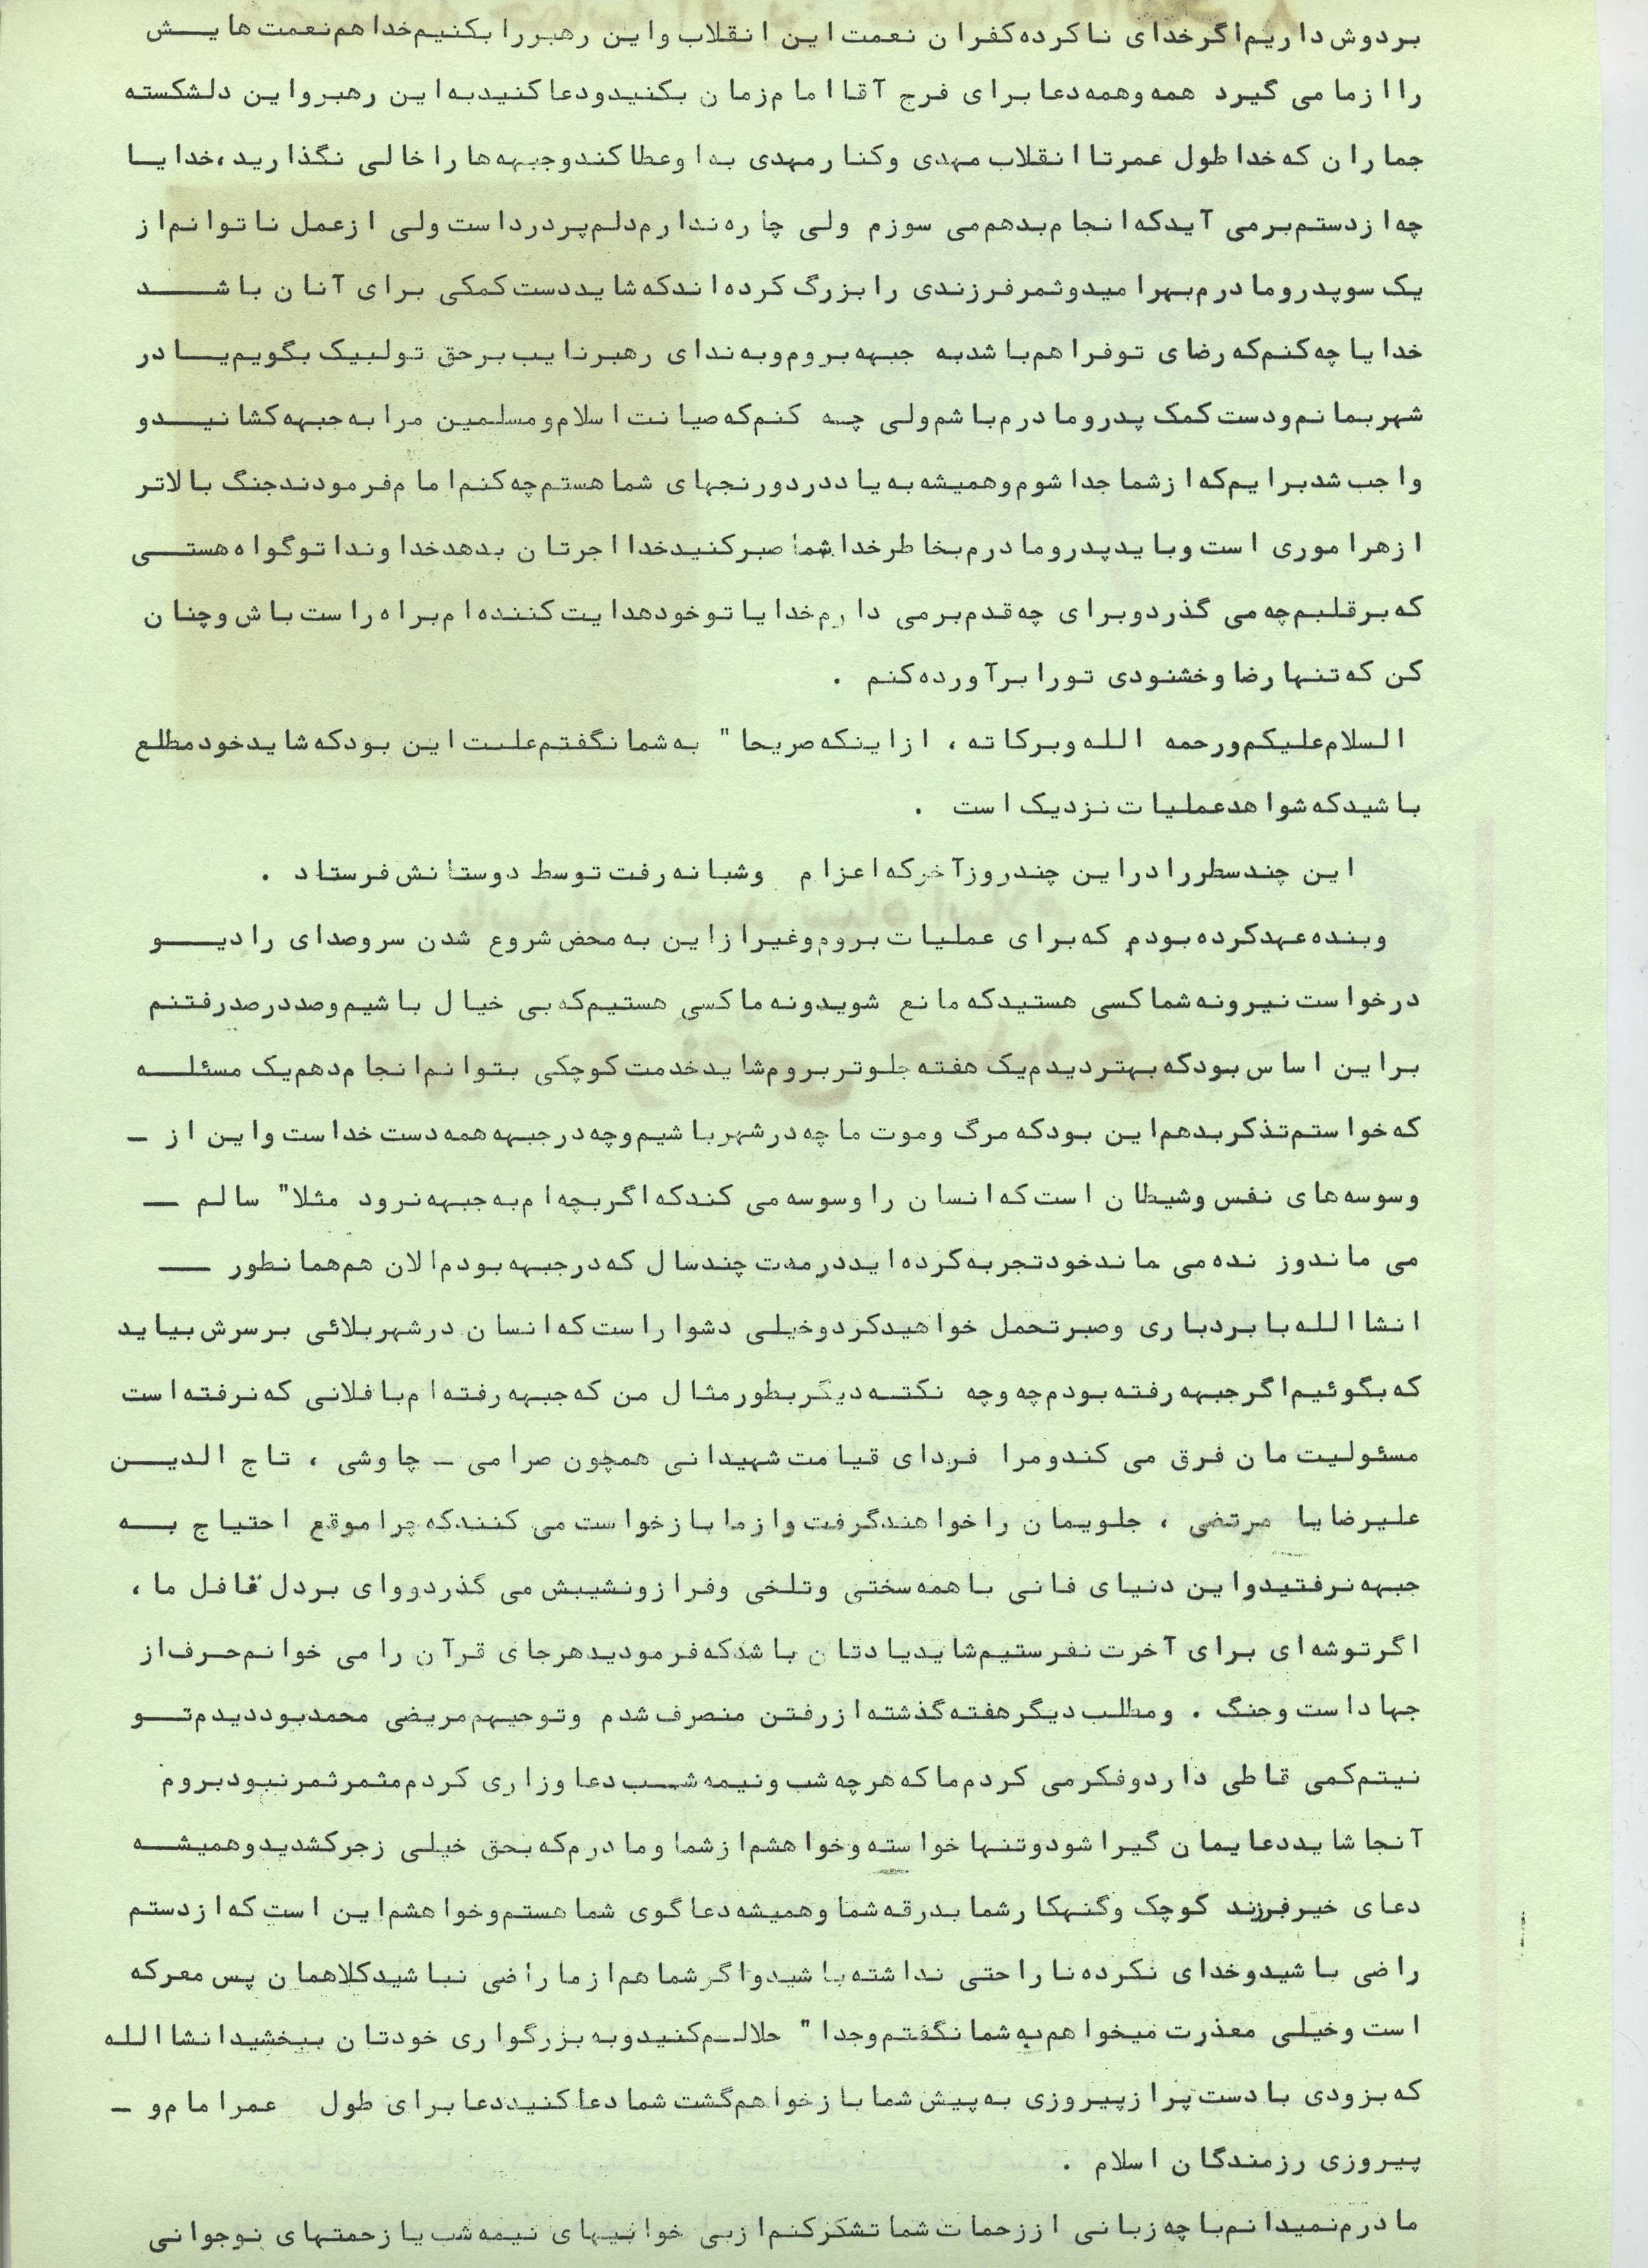 بردوش داریم اگر خدای ناکرده کفران نعمت این انقلاب و این رهبر را بکنیم خدا هم نعمت هایش
را از ما می گیرد همه و همه دعا برای فرج آقا امام زمان بکنید و دعا کنید به این رهبر و این دلشکسته
جماران که خدا طول عمر تا انقلاب مهدی و کنار مهدی به او عطا کند و جبهه ها را خالی نگذارید ، خدایا
چه از دستم بر می آید که انجام بدهم می سوزم ولی چاره ندارم دلم پر درد است ولی از عمل ناتوانم از
یک سو پدر و مادرم بهر امید و ثمر فرزندی را بزرگ کرده اند که شاید دست کمکی برای آنان باشد
خدایا چه کنم که رضای تو فراهم باشد به جبهه بروم و به ندای رهبر نایب بر حق تو لبیک بگویم یا در
شهر بمانم و دست کمک پدر و مادرم باشم ولی چه کنم که صیانت اسلام و مسلمین مرا به جبهه کشانید و
واجب شد برایم که از شما جدا شوم و همیشه به یاد درد و رنجهای شما هستم چه کنم امام فرمودند جنگ بالاتر
از هر اموری است و باید پدر و مادرم بخاطر خدا شما صبر کنید خدا اجرتان بدهد خداوندا تو گواه هستی
که بر قلبم چه می گذرد و برای چه قدم بر می دارم خدایا تو خود هدایت کننده ام براه راست باش و چنان
کن که تنها رضا و خشنودی تو را برآورده کنم .
السلام علیکم و رحمه الله و برکاته ، از اینکه صریحا" به شما نگفتم علت این بود که شاید خود مطلع
باشید که شواهد عملیات نزدیک است .
این چند سطر را در این چند روز آخر که اعزام و شبانه رفت توسط دوستانش فرستاد .
و بنده عهد کرده بودم که برای عملیات بروم و غیر از این به محض شروع شدن سر و صدای رادیو
درخواست نیرو نه شما کسی هستید که مانع شوید و نه ما کسی هستیم که بی خیال باشیم و صد در صد رفتنم
بر این اساس بود که بهتر دیدم یک هفته جلوتر بروم شاید خدمت کوچکی بتوانم انجام دهم یک مسئله
که خواستم تذکر بدهم این بود که مرگ و موت ما چه در شهر باشیم و چه در جبهه همه دست خداست و این از -
وسوسه های نفس و شیطان است که انسان را وسوسه می کند که اگر بچه ام به جبهه نرود مثلا" سالم —
می ماند و زنده می ماند خود تجربه کرده اید در مدت چند سال که در جبهه بودم الان هم همانطور —
انشاالله با بردباری و صبر تحمل خواهید کرد و خیلی دشوار است که انسان در شهر بلائی بر سرش بیاید
که بگوئیم اگر جبهه رفته بودم چه و چه نکته دیگر بطور مثال من که جبهه رفته ام با فلانی که نرفته است
مسئولیت مان فرق می کند و مرا فردای قیامت شهیدانی همچون صرامی - چاوشی ، تاج الدین
علیرضا یا مرتضی ، جلویمان را خواهند گرفت و از ما بازخواست می کنند که چرا موقع احتیاج به
جبهه نرفتید و این دنیای فانی با همه سختی و تلخی و فراز و نشیبش می گذرد و وای بر دل غافل ما ،
اگر توشه ای برای آخرت نفرستیم شاید یادتان باشد که فرمودید هر جای قرآن را می خوانم حرف از
جهاد است و جنگ . و مطلب دیگر هفته گذشته از رفتن منصرف شدم و توجیهم مریضی محمد بود دیدم تو
نیتم کمی قاطی دارد و فکر می کردم ما که هر چه شب و نیمه شب دعا و زاری کردم مثمر ثمر نبود بروم
آنجا شاید دعایمان گیرا شود و تنها خواسته و خواهشم از شما و مادرم که بحق خیلی زجر کشدید و همیشه
دعای خیر فرزند کوچک و گنهکار شما بدرقه شما و همیشه دعاگوی شما هستم و خواهشم این است که از دستم
راضی باشید و خدای نکرده ناراحتی نداشته باشید و اگر شما هم از ما راضی نباشید کلاهمان پس معرکه
است و خیلی معذرت میخواهم به شما نگفتم و جدا" حلالم کنید و به بزرگواری خودتان ببخشید انشاالله
که بزودی با دست پر از پیروزی به پیش شما باز خواهم گشت شما دعا کنید دعا برای طول عمر امام و -
پیروزی رزمندگان اسلام .
مادرم نمیدانم با چه زبانی از زحمات شما تشکر کنم از بی خوابیهای نیمه شب یا زحمتهای نوجوانی